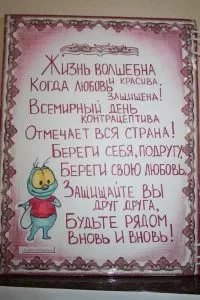 Жизнь волшебна
и красива,
Когда любовь
защищена!
Всемирный день
контрацептива
Отмечает вся страна!
Береги себя, подругу,
Береги свою любовь.
Защищайте вы
друг друга,
Будьте рядом
вновь и вновь!